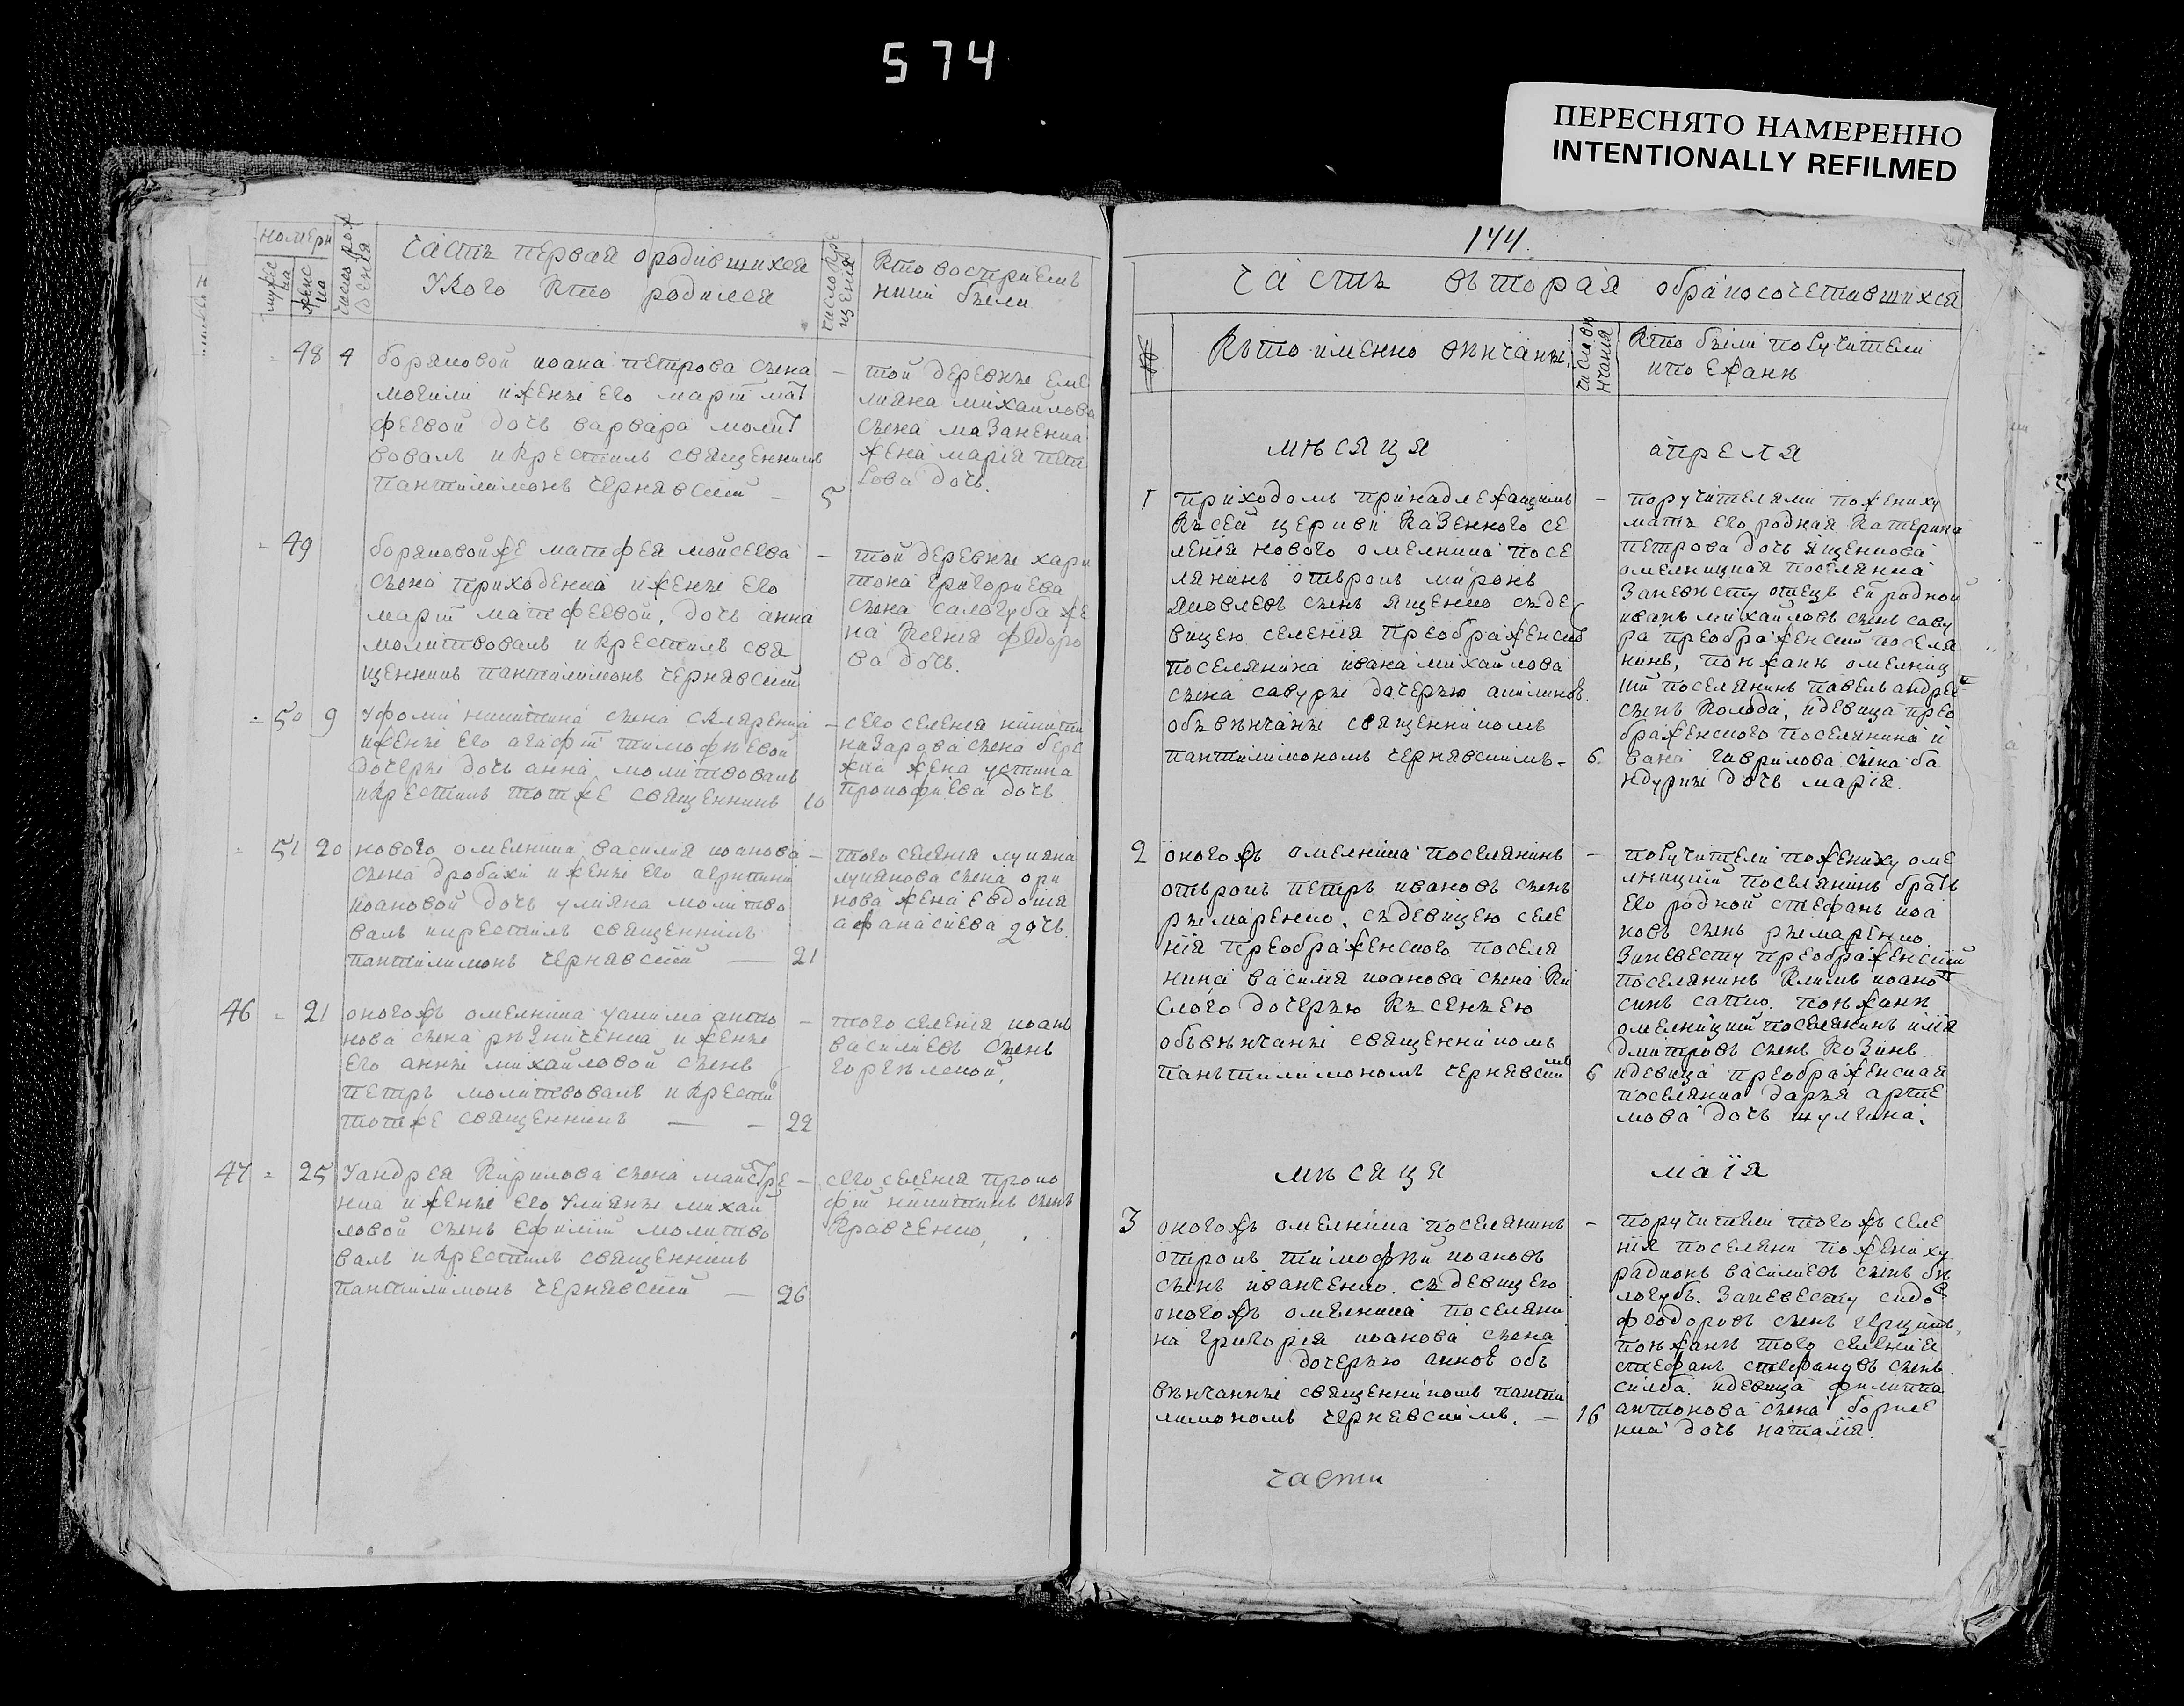 574
ПЕРЕСНЯТО НАМЕРЕННО
INTENTIONALLY REFILMED
номери
мужс
ка
женс
ка
число рож
денія
часть первая ородившихся
Укого Кто родился
число кре
щенія
Кто восприемъ
ники были
48 4
боряновой иоана петрова сына
могили ижены его марϊи мат
феевой дочь варвара молит
вовалъ икрестилъ священникъ
пантилимонъ чернявскϊй —
5
— той деревны еме
лияна михайлова
сына мазаненка
жена марїя пет
рова дочь.
- 49
боряновойже матфея мойсеева
сына приходенка ижены его
марϊи матфеевой, дочь анна
молитвовалъ икрестилъ свя
щенникъ пантилимонъ чернявскϊй
— той деревны хари
тона григориева
сына салогуба же
на ксенїя федоро
ва дочь.
- 50 9
Уфоми никитина сына скляренка
ижены его агафϊи тимофѣевой
дочеры дочь анна молитвовалъ
икрестилъ тотже священникъ 10
— сего селенїя никити
назарова сына берс
жена устина
прокофиева дочь
- 51 20
нового омелника василия иоанова
сына дробахи ижены его
иоановой дочь улияна молитво
валъ икрестилъ священникъ
пантилимонъ чернявскϊй — 21
— того селенїя лукяна
лукянова сына ори
нова жена евдокїя
афанасиева дочь
46 - 21
оногожъ омелника уакима анто
нова сына рѣзниченка ижены
его анны михайловой сынъ
петръ молитвовалъ икрести
тотже священникъ — - 22
— того селенїя иоанъ
василиевъ сынъ
горѣлской,
47 - 25
Уандрея Кирилова сына майстре
нка ижены его улияны михай
ловой сынъ ефимϊй молитво
валъ икрестилъ священникъ
пантилимонъ чернявскϊй — 26
— сего селенїя проко
фϊй никитинъ сынъ
Кравченко,
144.
часть въторая обракосочетавшихся
№
Къто именно вѣнчаны
число вѣ
нчания
Кто были поручители
ипоежанѣ
мѣсяця апреля
1
приходомъ принадлежащимъ
Късей церкви казенного се
ленїя нового омелника посе
лянинъ отърокъ миронъ
яковлевъ сынъ ященко съде
вицею селенїя преображенског
поселянина ивана михайлова
сына савуры дочерью акилиною.
объвѣнчаны священникомъ
пантилимономъ чернявскимъ - 6.
— поручителями пожениху
мать его родная катерина
петрова дочь ященкова
омелницкая поселянка
Заневѣсту отецъ ей родной
иванъ михайловъ сынъ саву
ра преображенскϊй поселя
нинъ, поѣжанѣ омелниц
кϊй поселянинъ павелъ андрее
сынъ колода, идевица прео
браженского поселянина и
вана гаврилова сына ба
ндурки дочь марїя.
2
оногожъ омелника поселянинъ
отърокъ петръ ивановъ сынъ
рымаренко, съдевицею селе
нїя преображенского поселя
нина василїя иоанова сына ки
слого дочерью Късенъею
объвѣнчаны священникомъ
панътилимономъ чернявским 6
— поручители пожениху оме
лницкϊй поселянинъ братъ
его родной стефанъ иоа
новъ сынъ рымаренко
Заневесту преображенскϊй
поселянинъ климъ иоано
синъ сапко. поѣжанѣ
омелницкϊй поселянинъ илїя
дмитровъ сынъ козинъ
идевица преображенская
поселянка дарья арте
мова дочь шулгина.
мѣсяця маїя
3
оногожъ омелника поселянинъ
отрокъ тимофѣй иоановъ
сынъ иванченко. съдевицею
оногожъ омелника поселяни
на григорїя иоанова сына
дочерью анною объ
вѣнчанны священникомъ панти
лимономъ чернявскимъ. — 16
— поручители тогожъ селе
нїя поселяни пожениху
радионъ василиевъ сынъ бѣ
логубъ. Заневесту сидо
феодоровъ сынъ
поѣжанѣ того селенїя
стефанъ стефановъ сынъ
идевица филиппа
антонова сына борисе
нка дочь наталїя.
части